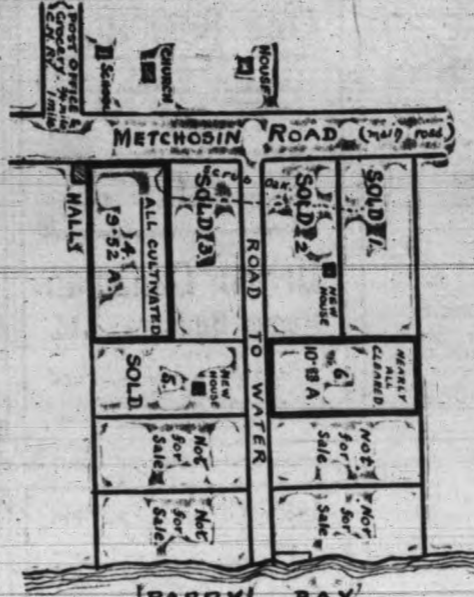 POST OFFICE &
Grocery. 3/4 mile
C.N.RY. 1 mile
SCHOOL
CHURCH
HOUSE
METCHOSIN ROAD (main road)
HALL
ALL CULTIVATED
4.
9.52 A.
SOLD 3
ROAD TO WATER
SOLD 2
NEW
HOUSE
SOLD 1.
NEW
HOUSE
5.
SOLD.
NEARLY
ALL
CLEARED.
6.
10.13 A.
Not
for
Sale
Not
for
Sale
Not
for
Sale
Not
for
Sale
PARRY BAY